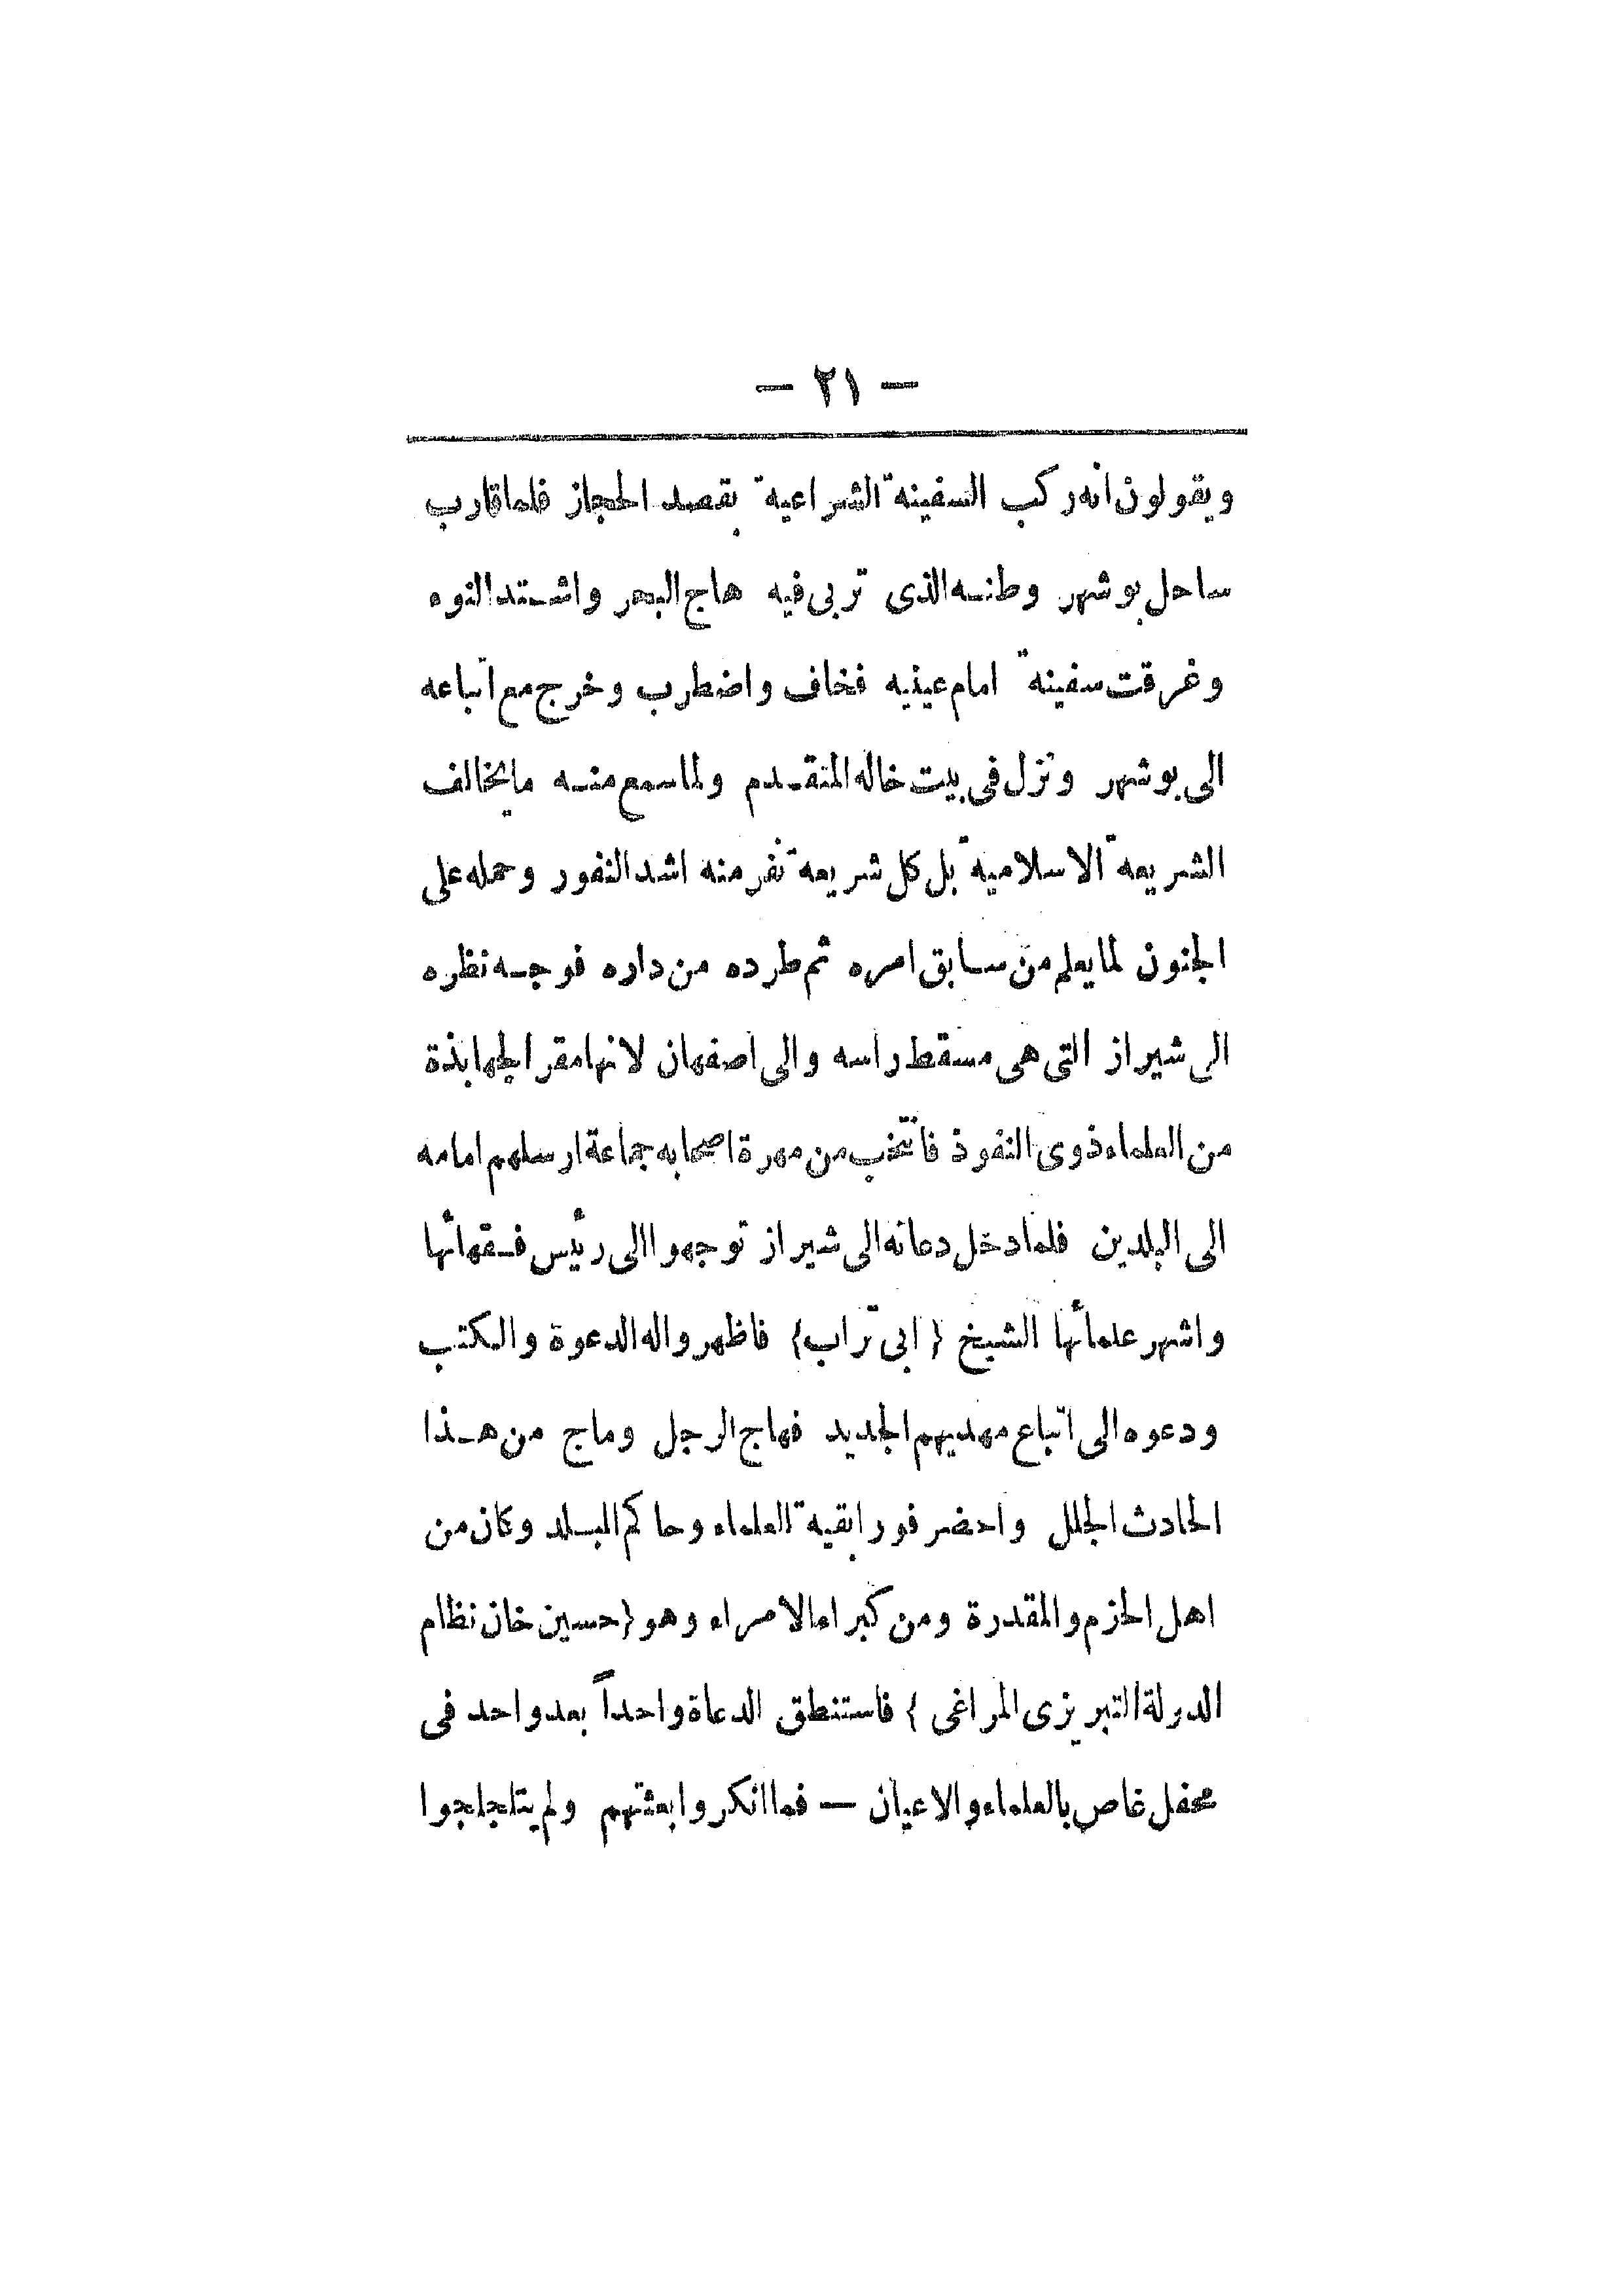 — ٢١ —
ويقولون انه ركب السفينة الشراعية بقصد الحجاز فلما قارب
ساحل بوشهر وطنه الذى تربى فيه هاج البحر واشتد النوء
وغرقت سفينة امام عينيه فخاف واضطرب وخرج مع اتباعه
الى بوشهر ونزل فى بيت خاله المتقدم ولما سمع منه ما يخالف
الشريعة الاسلامية بل كل شريعة نفر منه اشد النفور وحمله على
الجنون لما يعلم من سابق امره ثم طرده من داره فوجه نظره
الى شيراز التى هى مسقط راسه والى اصفهان لانها مقر الجهابذة
من العلماء ذوى النفوذ فانتخب من مهرة اصحابه جماعة ارسلهم امامه
الى البلدين فلما دخل دعاته الى شيراز توجهوا الى رئيس فقهائها
واشهر علمائها الشيخ { ابى تراب } فاظهروا له الدعوة والكتب
ودعوه الى اتباع مهديهم الجديد فهاج الرجل وماج من هذا
الحادث الجلل واحضر فورا بقية العلماء وحاكم البلد وكان من
اهل الحزم والمقدرة ومن كبراء الامراء وهو { حسين خان نظام
الدولة التبريزى المراغى } فاستنطق الدعاة واحداً بعد واحد فى
محفل غاص بالعلماء والاعيان — فما انكروا بعثتهم ولم يتلجلجوا